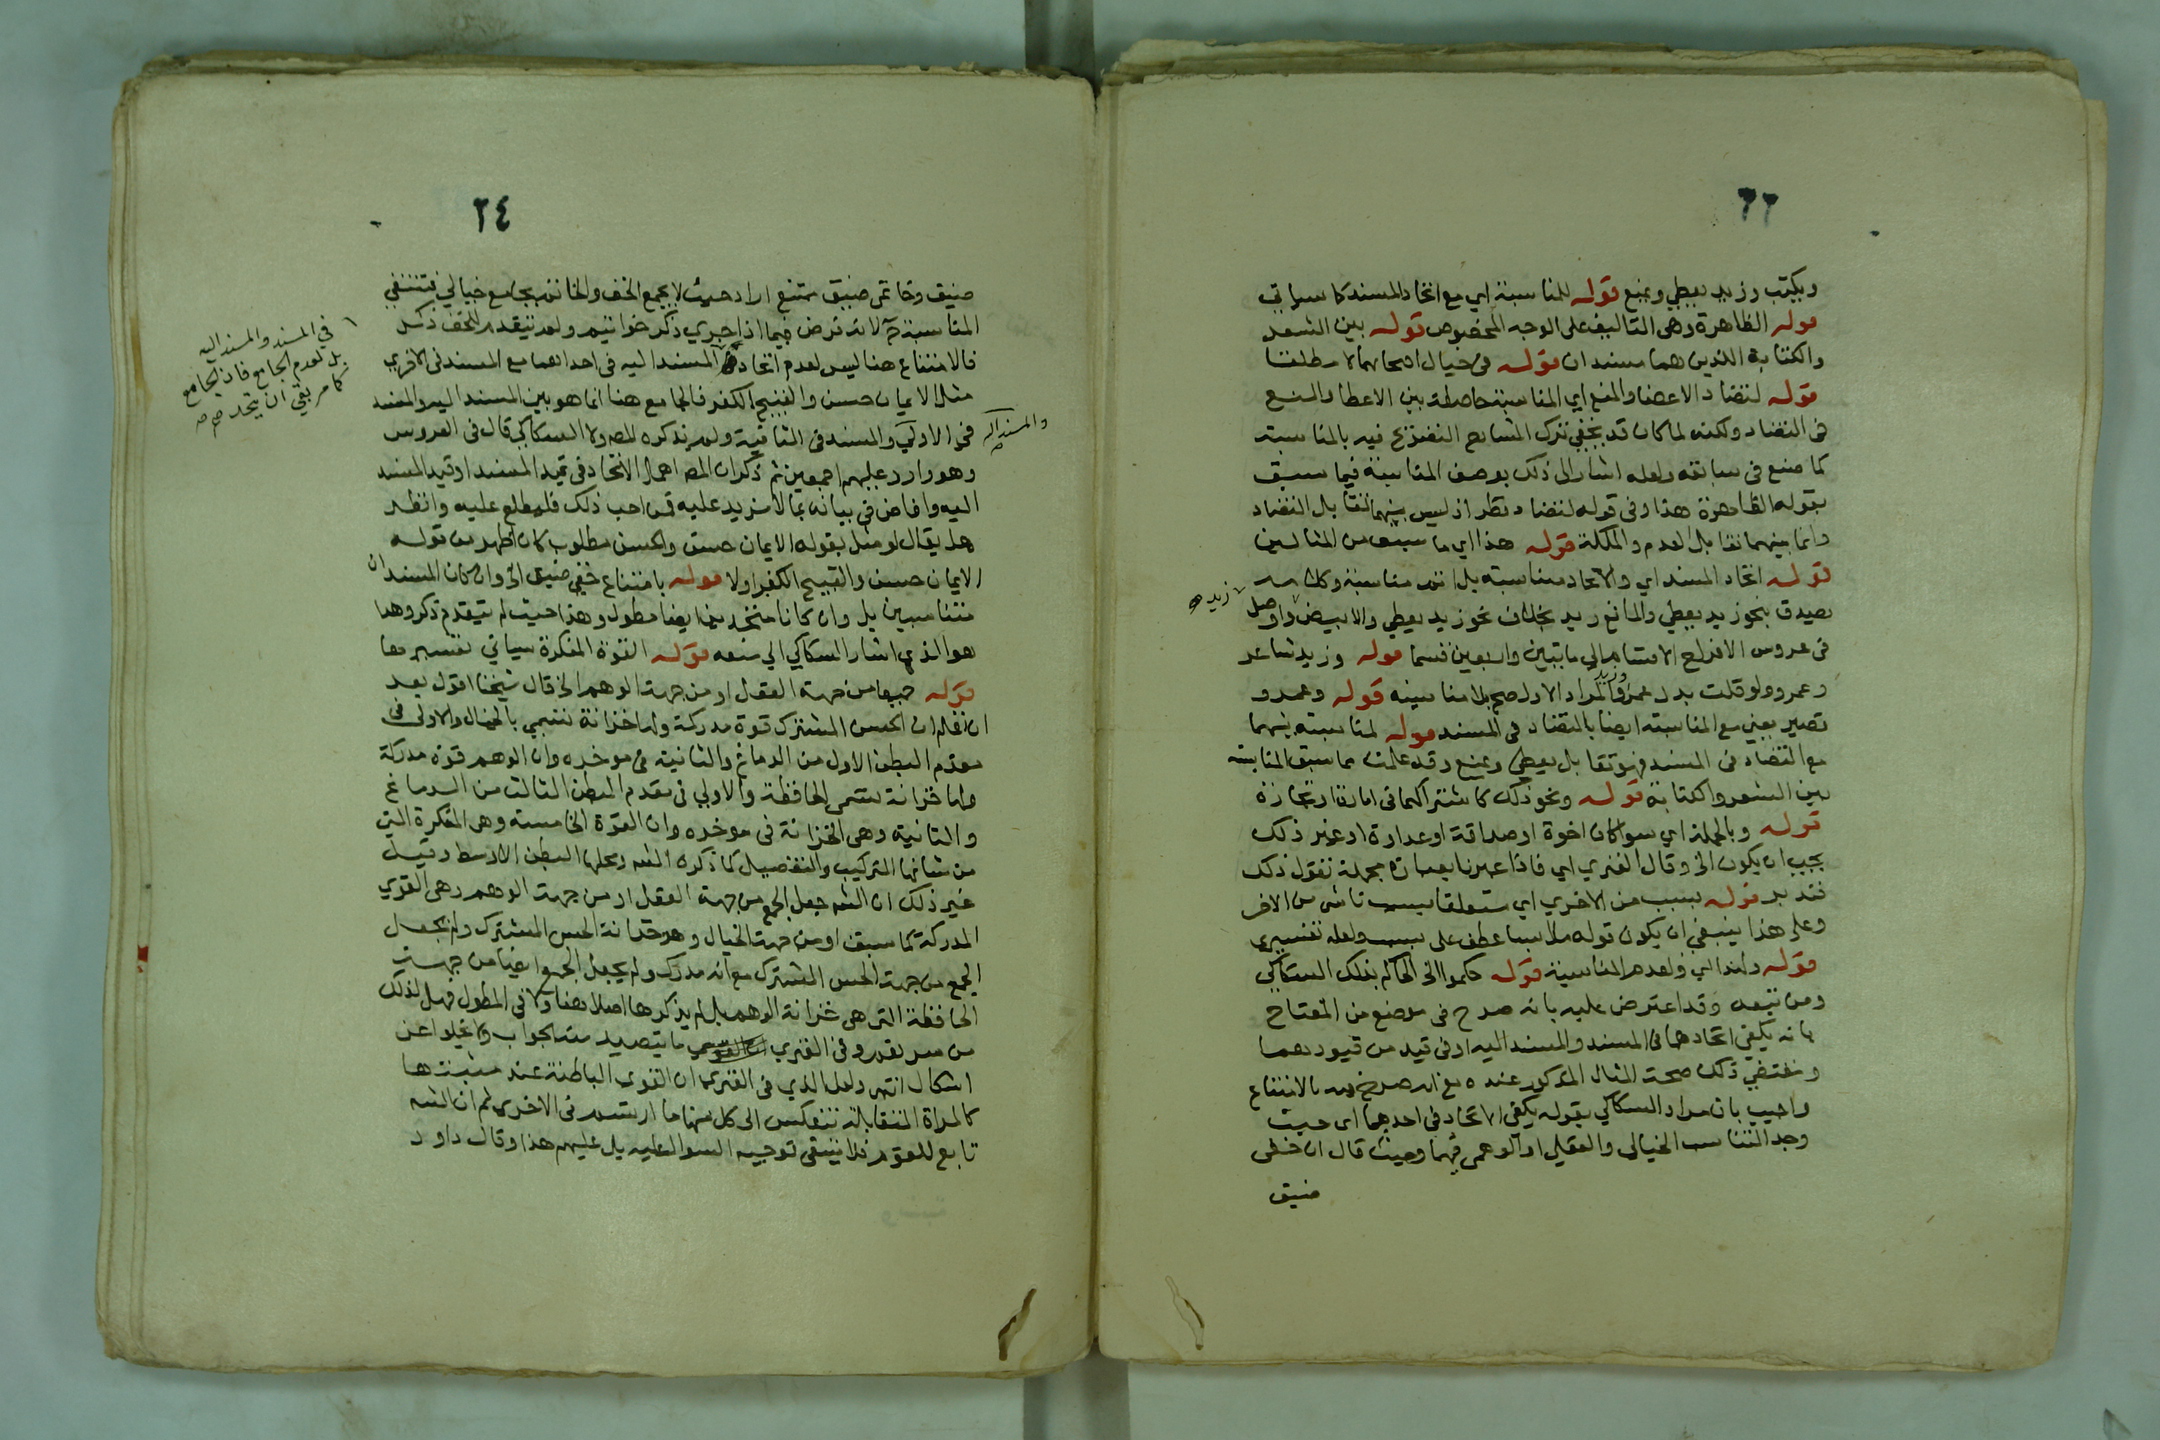 ٢٢
ويكتب وزيد يعطي ويمنع قوله للمناسبة اي مع اتحاد المسند كما سيأتي
قوله الظاهرة وهي التاليف على الوجه المخصوص قوله بين الشعر
والكتابة اللذين هما مسندان قوله في خيال اصحابهما لا مطلقا
قوله لتضاد الاعطا والمنع اي المناسبة حاصلة بين الاعطا والمنع
في التضاد ولكنه لما كان قد يخفي ترك الشارح التصريح فيه بالمناسبة
كما صنع في سابقه ولعله اشار الى ذلك بوصف المناسبة فيما سبق
بقوله الظاهرة هذا وفي قوله لتضاد نظر اذ ليس بينهما تقابل التضاد
وانما بينهما تقابل العدم والملكة قوله هذا اي ما سبق من المثالين
قوله اتحاد المسند اي والاتحاد مناسبة بل اتم مناسبة وكلامه
يصدق بنحو زيد يعطي والمانع زيد بخلاف نحو زيد يعطي والابيض واوصل
زيد صح
في عروس الافراح الاقسام الى مايتين واربعين قسما قوله وزيد شاعر
وعمرو ولو قلت بدل عمرو المراد الاول صح بلا مناسبة قوله وعمرو
قصير يعني مع المناسبة ايضا بالتضاد في المسند قوله لمناسبة بينهما
مع التضاد في المسند فهو تقابل يعطي ويمنع وقد علمت مما سبق المناسبة
بين الشعر والكتابة قوله ونحو ذلك كاشتراكهما في امارة او تجارة
قوله وبالجملة اي سوا كان اخوة او صداقة او عداوة او غير ذلك
يجب ان يكون الخ وقال الفنري اي فاذا عبرنا بعبارة مجملة نقول ذلك
فتدبر قوله بسبب من الاخري اي متعلقا بسبب ناشي من الاخر
وعلى هذا ينبغي ان يكون قوله ملابسا عطف على بسبب ولعله تفسيري
قوله ولهذا اي ولعدم المناسبة قوله حكموا الخ الحاكم بذلك السكاكي
ومن تبعه وقد اعترض عليه بانه صرح في موضع من المفتاح
بانه يكفي اتحادهما في المسند والمسند اليه او في قيد من قيودهما
ومقتضي ذلك صحة المثال المذكور عنده مع انه صرح فيه بالامتناع
واجيب بان مراد السكاكي بقوله يكفي الاتحاد في احدهما اي حيث
وجد التناسب الخيالي والعقلي او الوهمي فيهما وحيث قال ان خفي
ضيق
٢٤
ضيق وخاتمي ضيق ممتنع اراد حيث لا يجمع الخف والخاتم بجامع خيالي فتنتفي
المناسبة ح لانه فرض فيما اذا جري ذكر خواتيم ولم يتقدم للخف ذكر
فالامتناع هنا ليس لعدم اتحاد المسند اليه في احداهما مع المسند في الاخري
في المسند والمسند اليه
بل لعدم الجامع فان الجامع
كما مر يقي ان يتحد صح صه
مثلا الايمان حسن والقبيح الكفر فالجامع هنا انما هو بين المسند اليه والمسند
في الاولي والمسند في الثانية ولم يذكره المص ولا السكاكي قال في العروس
والمسند اليه صح
وهو وارد عليهم اجمعين ثم ذكر ان المص اهمل الاتحاد في قيد المسند او قيد المسند
اليه وافاض في بيانه بما لا مزيد عليه فمن احب ذلك فليطلع عليه وانظر
هل يقال لو مثل بقوله الايمان حسن والحسن مطلوب كان اظهر من قوله
الايمان حسن والقبيح الكفر اولا قوله بامتناع خفي ضيق الخ وان كان المسندان
متناسبين بل وان كانا متحدين ايضا مطول وهذا حيث لم يتقدم ذكر وهذا
هو الذي اشار السكاكي الي منعه قوله القوة المفكرة سياتي تفسيرها
قوله جميعا من جهة العقل او من جهة الوهم الخ قال شيخنا اقول بعد
ان تعلم ان الحس المشترك قوة مدركة ولها خزانة تسمي بالخيال والاولى في
مقدم البطن الاول من الدماغ والثانية في موخره وان الوهم قوة مدركة
ولها خزانة تسمى الحافظة والاولي في مقدم البطن الثالث من الدماغ
والثانية وهي الخزانة في موخره وان القوة الخامسة وهي المفكرة التي
من شانها التركيب والتفصيل كما ذكره الشه ومحلها البطن الاوسط وقيل
غير ذلك ان الشه جعل الجمع من جهة العقل او من جهة الوهم وهي القوي
المدركة كما سبق او من جهة الخيال وهو خزانة الحس المشترك ولم يجعل
الجمع من جهة الحس المشترك مع انه مدرك ولم يجعل الجمع ايضا من جهة
الحافظة التي هي خزانة الوهم بل لم يذكرها اصلا هنا ولا في المطول فهل لذلك
من سر يقرر وفي الفنري ما يتصيد منه الجواب ولا يخلوا عن
اشكال انتهى ولعل الذي في الفنري ان القوي الباطنة عند مثبتها
كالمراة المتقابلة تنعكس الى كل منها ما ارتسم في الاخري ثم ان الشه
تابع للقوم فلا ينبغي توجيه السوال عليه بل عليهم هذا وقال داود